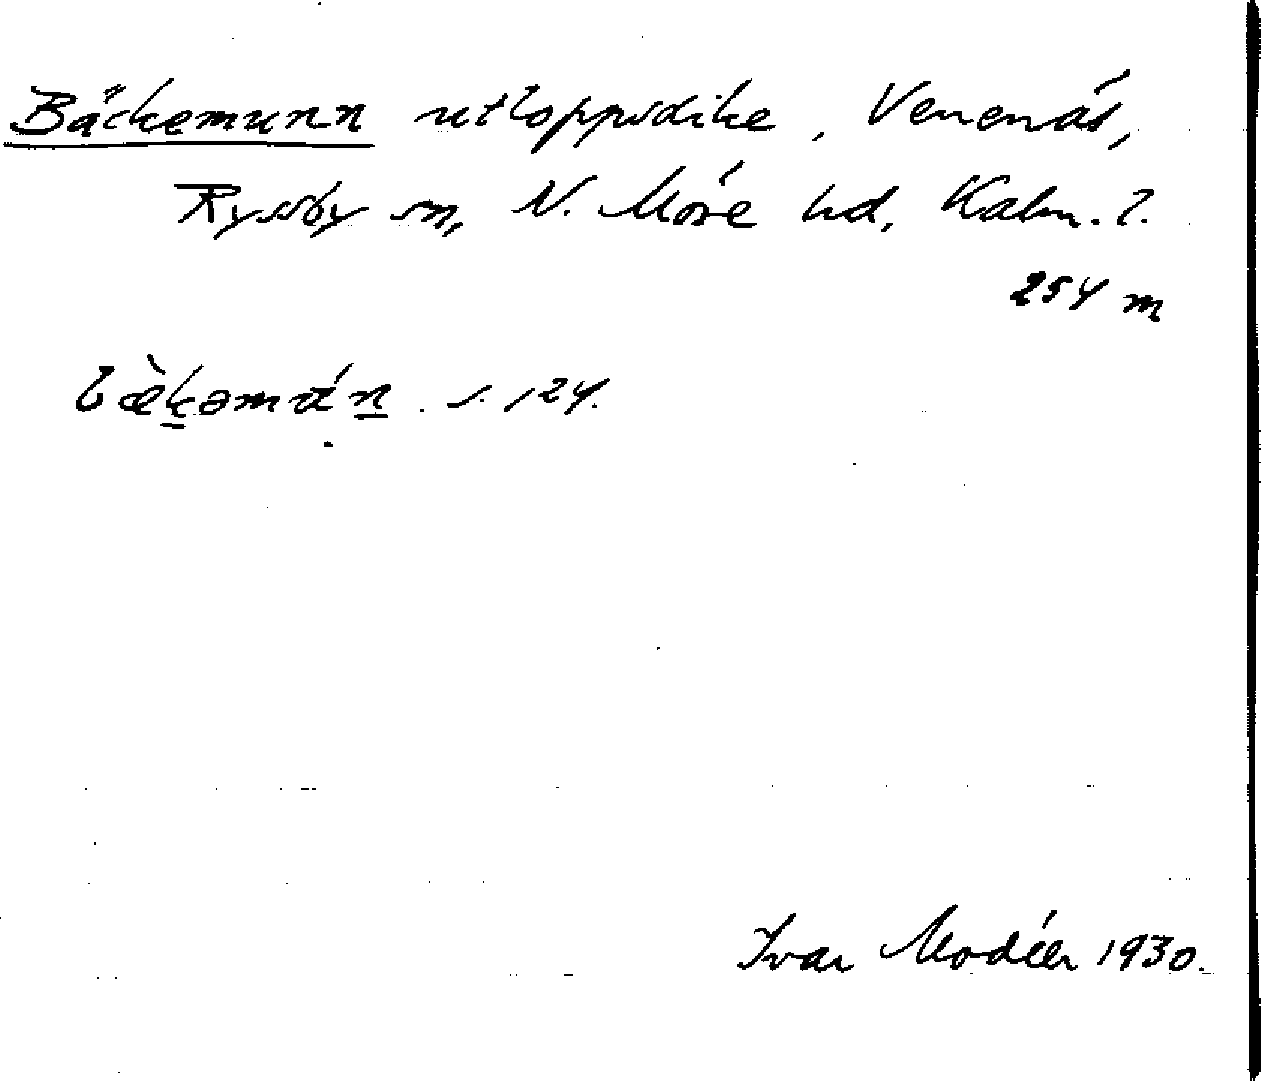 Bäckemunn utloppsdike, Venenäs,
Ryssby sn, N. Möre hd, Kalm. l.
254 m
s. 124.
Ivar Modéer 1930.